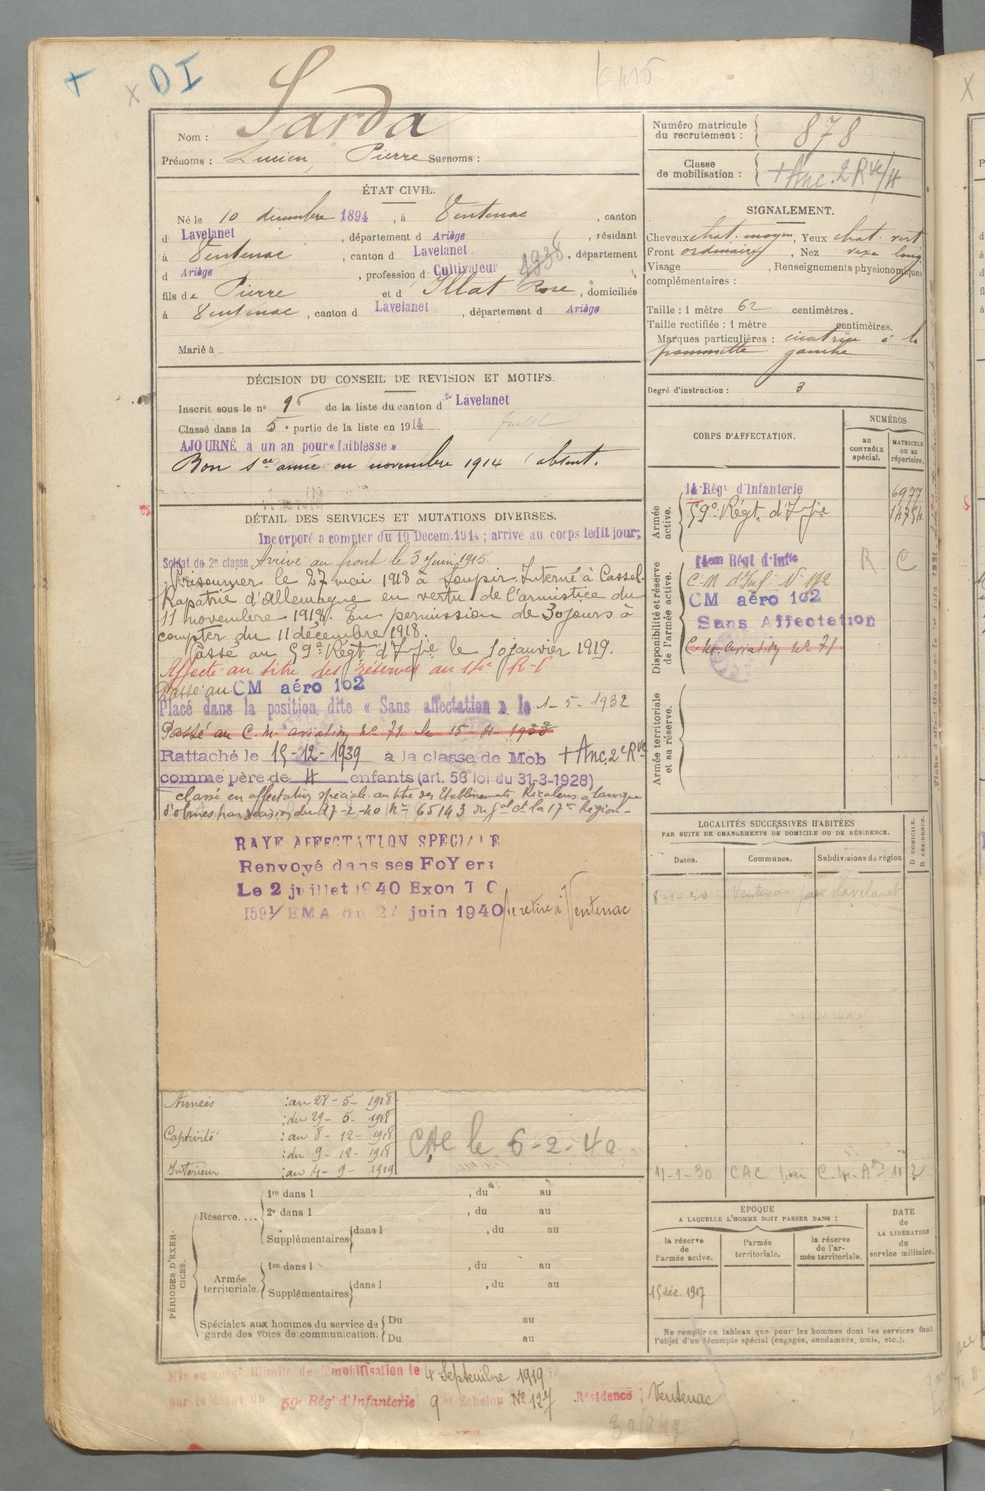 + DI
Nom : Sarda
Prénoms : Lucien, Pierre Surnoms :
ÉTAT CIVIL.
Né le 10 décembre 1894, à Ventenac, canton
d Lavelanet, département d Ariège, résidant
à Ventenac, canton d Lavelanet, département
d Ariège, profession d Cultivateur 1938
fils de Pierre et d Illat Rose, domiciliés
à Ventenac, canton d Lavelanet, département d Ariège
Marié à
DÉCISION DU CONSEIL DE REVISION ET MOTIFS.
Inscrit sous le n° 95 de la liste du canton de Lavelanet
Classé dans la 5e partie de la liste en 1914
AJOURNÉ a un an pour « faiblesse »
Bon en novembre 1914 (absent.
DÉTAIL DES SERVICES ET MUTATIONS DIVERSES.
Incorporé a compter du 19 Decem. 1914 ; arrive au corps ledit jour;
Soldat de 2e classe Arrivé au front le 3 Juin 1915
Prisonnier le 27 mai 1918 à Soupir. Interné à Cassel
Rapatrié d'Allemagne en vertu de l'armistice du
11 novembre 1918. En permission de 30 jours à
compter du 11 décembre 1918.
Passé au 59e Régt d'Ifie le 10 janvier 1919.
Affecté au titre des réserves au R-I
Passé au CM aéro 102
Placé dans la position dite « Sans affectation » le 1-5-1932
Passé au C. M. aviation No 71 le 15-4-1938
Rattaché le 15-12-1939 à la classe de Mob + Anc. 2e Rve
comme père de 4 enfants (art. 58 loi du 31-3-1928)
classé en affectation spéciale au titre des Etablissements Ricalens a Laroque
d'olmes par décision du 27-2-40 No 65143 du Gal Ct la 17e Région
RAYE AFFECTATION SPECIALE
Renvoyé dans ses FoYers
Le 2 juillet 1940 Exon T O
1591/EMA du 27 juin 1940 se retire à Ventenac
Armées : au 28-5-1918
: du 29-5-1918
Captivité : au 8-12-1918
: du 9-12-1918
Intérieur : au 4-9-1919
CAE le 6-2-40
PÉRIODES D'EXERCICES.
Réserve....
1re dans l , du au
2e dans l , du au
Supplémentaires dans l , du au
Armée territoriale.
1re dans l , du au
Supplémentaires dans l , du au
Spéciales aux hommes du service de garde des voies de communication.
Du au
Du au
Mis en congé illimité de démobilisation le 4 Septembre 1919
par le dépôt du 59e Rég' d'Infanterie 9e Echelon No 127 Résidence ; Ventenac
Numéro matricule du recrutement : 878
Classe de mobilisation : + Anc. 2 Rve/4
SIGNALEMENT.
Cheveux chat. moyen, Yeux chat. vert
Front ordinaire, Nez vexe long
Visage , Renseignements physionomiques
complémentaires :
Taille : 1 mètre 62 centimètres.
Taille rectifiée : 1 mètre centimètres.
Marques particulières : cicatrice à la
pommette gauche
Degré d'instruction : 3
CORPS D'AFFECTATION.
NUMÉROS
au CONTRÔLE spécial.
MATRICULE OU AU répertoire.
Armée active.
14e Régt d'Infanterie 6977
59e Régt. d'Ifie 14754
Disponibilité et réserve de l'armée active.
Régt d'Inftie R C
CM aéro 102
Sans Affectation
C. M. aviation No 71
Armée territoriale et sa réserve.
LOCALITÉS SUCCESSIVES HABITÉES
PAR SUITE DE CHANGEMENTS DE DOMICILE OU DE RÉSIDENCE.
Dates. Communes. Subdivisions de région D DOMICILE. R RÉSIDENCE.
Ventenac par Lavelanet
11-1-30 CAC
EPOQUE
A LAQUELLE L'HOMME DOIT PASSER DANS :
DATE de LA LIBÉRATION du service militaire.
la réserve de l'armée active.
l'armée territoriale.
la réserve de l'armée territoriale.
15 déc. 1917
Ne remplir ce tableau que pour les hommes dont les services font
l'objet d'un décompte spécial (engagés, condamnés, omis, etc.).